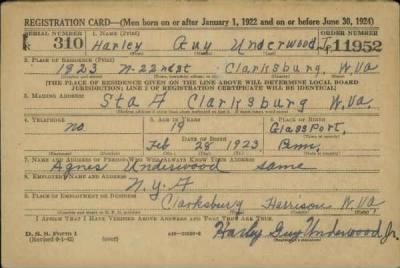 REGISTRATION CARD—(Men born on or after January 1, 1922 and on or before June 30, 1924)
SERIAL NUMBER 1. NAME ORDER NUMBER
310 Harley Guy Underwood Jr. 11952
2. PLACE OF RESIDENCE (Print)
1923 N-22nd St Clarksburg W.Va
(THE PLACE OF RESIDENCE GIVEN ON THE LINE ABOVE WILL DETERMINE LOCAL BOARD
JURISDICTION; LINE 2 OF REGISTRATION CERTIFICATE WILL BE IDENTICAL)
3. MAILING ADDRESS
Sta A Clarksburg W.Va.
4. TELEPHONE 5. AGE IN YEARS 6. PLACE OF BIRTH
no. 19 Glassport,
DATE OF BIRTH
Feb 28 1923 Penn.
7. NAME AND ADDRESS OF PERSON WHO WILL ALWAYS KNOW YOUR ADDRESS
Agnes Underwood same
8. EMPLOYER'S NAME AND ADDRESS
N.Y.A
9. PLACE OF EMPLOYMENT OR BUSINESS
Clarksburg Harrison W.Va
I AFFIRM THAT I HAVE VERIFIED ABOVE ANSWERS AND THAT THEY ARE TRUE.
D. S. S. Form 1
(over) Harley Guy Underwood Jr.